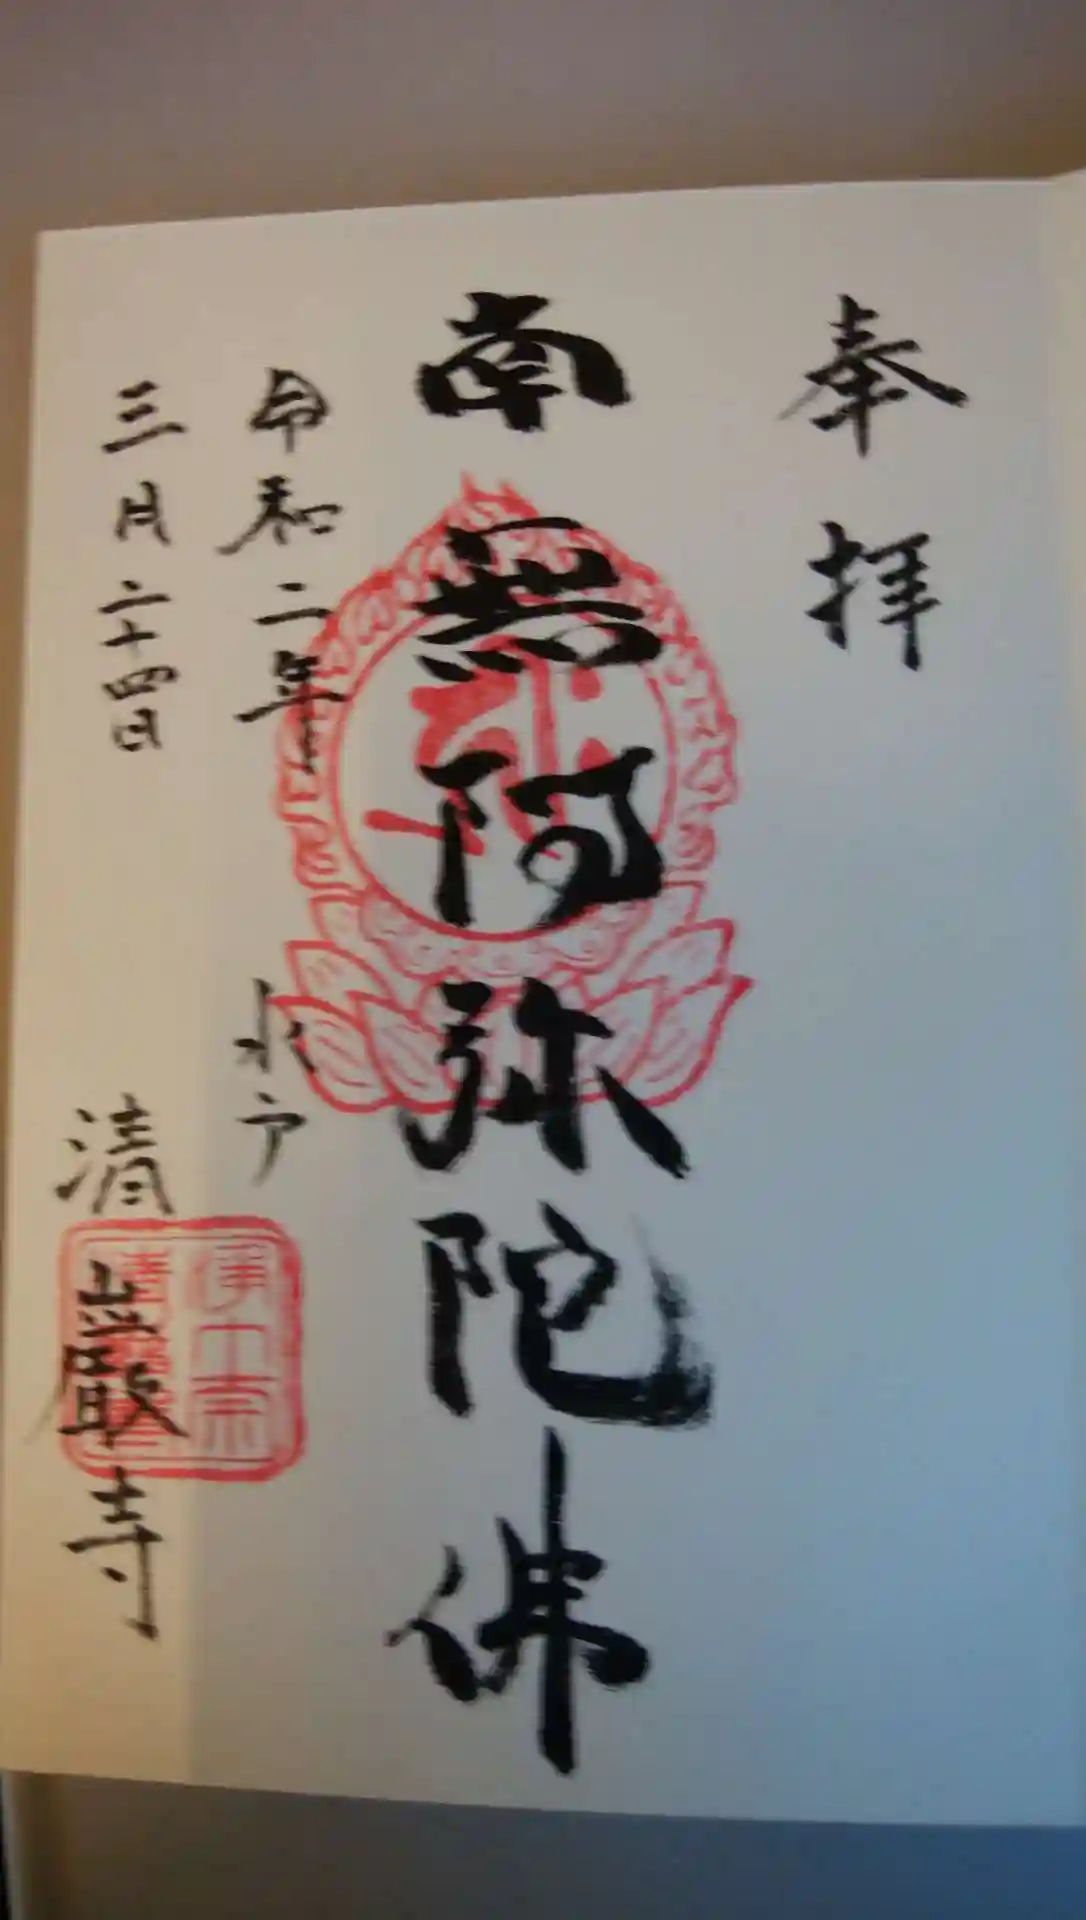 奉拝
南無阿弥陀佛
令和二年
三月二十四日
水戸
清巌寺
浄土宗